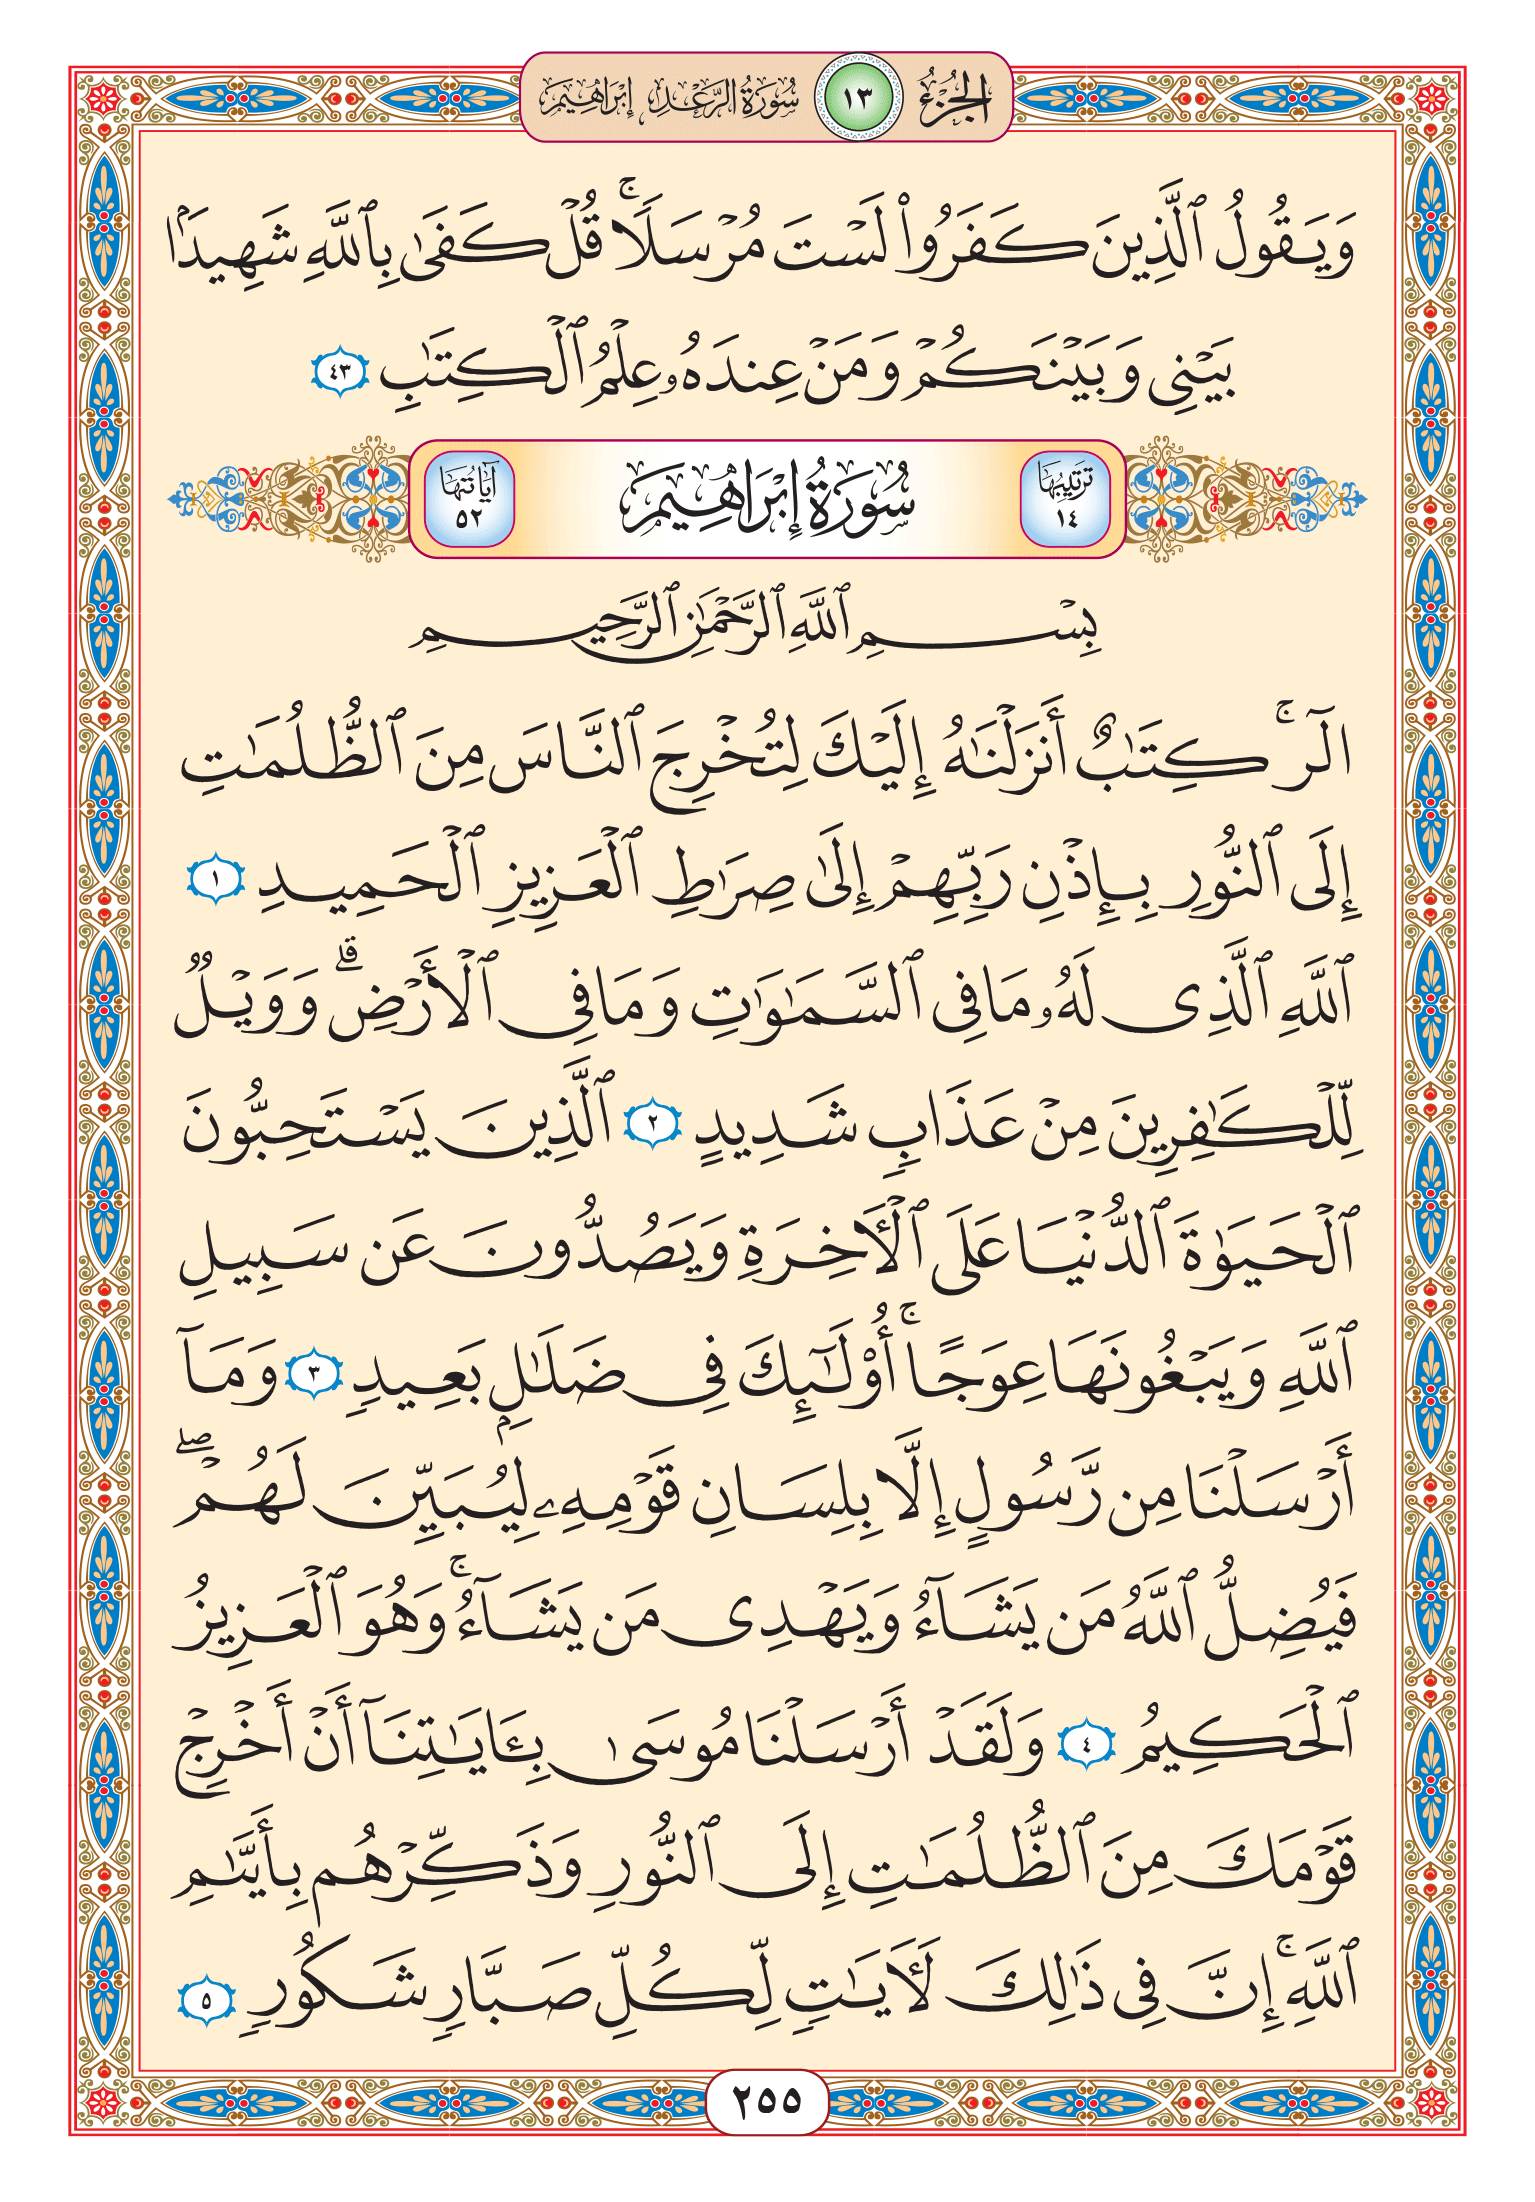 الجزء ١٣ سورة الرعد إبراهيم
وَيَقُولُ ٱلَّذِينَ كَفَرُوا۟ لَسْتَ مُرْسَلًا ۚ قُلْ كَفَىٰ بِٱللَّهِ شَهِيدًۢا
بَيْنِى وَبَيْنَكُمْ وَمَنْ عِندَهُۥ عِلْمُ ٱلْكِتَٰبِ ٤٣
ترتيبها ١٤ سُورَةُ إِبْرَاهِيمَ آياتها ٥٢
بِسْمِ ٱللَّهِ ٱلرَّحْمَٰنِ ٱلرَّحِيمِ
الٓر ۚ كِتَٰبٌ أَنزَلْنَٰهُ إِلَيْكَ لِتُخْرِجَ ٱلنَّاسَ مِنَ ٱلظُّلُمَٰتِ
إِلَى ٱلنُّورِ بِإِذْنِ رَبِّهِمْ إِلَىٰ صِرَٰطِ ٱلْعَزِيزِ ٱلْحَمِيدِ ١
ٱللَّهِ ٱلَّذِى لَهُۥ مَا فِى ٱلسَّمَٰوَٰتِ وَمَا فِى ٱلْأَرْضِ ۗ وَوَيْلٌ
لِّلْكَٰفِرِينَ مِنْ عَذَابٍ شَدِيدٍ ٢ ٱلَّذِينَ يَسْتَحِبُّونَ
ٱلْحَيَوٰةَ ٱلدُّنْيَا عَلَى ٱلْـَٔاخِرَةِ وَيَصُدُّونَ عَن سَبِيلِ
ٱللَّهِ وَيَبْغُونَهَا عِوَجًا ۚ أُو۟لَٰٓئِكَ فِى ضَلَٰلٍۭ بَعِيدٍ ٣ وَمَآ
أَرْسَلْنَا مِن رَّسُولٍ إِلَّا بِلِسَانِ قَوْمِهِۦ لِيُبَيِّنَ لَهُمْ ۖ
فَيُضِلُّ ٱللَّهُ مَن يَشَآءُ وَيَهْدِى مَن يَشَآءُ ۚ وَهُوَ ٱلْعَزِيزُ
ٱلْحَكِيمُ ٤ وَلَقَدْ أَرْسَلْنَا مُوسَىٰ بِـَٔايَٰتِنَآ أَنْ أَخْرِجْ
قَوْمَكَ مِنَ ٱلظُّلُمَٰتِ إِلَى ٱلنُّورِ وَذَكِّرْهُم بِأَيَّىٰمِ
ٱللَّهِ ۚ إِنَّ فِى ذَٰلِكَ لَـَٔايَٰتٍ لِّكُلِّ صَبَّارٍ شَكُورٍ ٥
٢٥٥